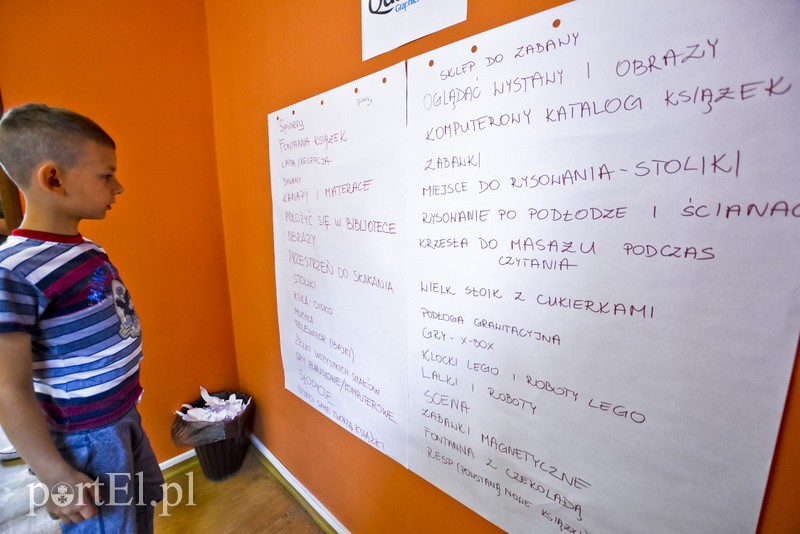 Graphic
Spinery
Spinery
FONTANNA KSIĄŻEK
LADA/RECEPCJA
DYWANY
KANAPY I MATERACE
POŁOŻYĆ SIĘ W BIBLIOTECE
OBRAZY
PRZESTRZEŃ DO SKAKANIA
STOLIKI
KULA - DISKO
MUZYKA
TELEWIZOR (BAJKI)
ŻELKI WSZYSTKICH SMAKÓW
GRY PLANSZOWE/KOMPUTEROWE
SŁODYCZE
DZIECI SAME TWORZĄ KSIĄŻKI
SKLEP DO ZABAWY
OGLĄDAĆ WYSTAWY I OBRAZY
KOMPUTEROWY KATALOG KSIĄŻEK
ZABAWKI
MIEJSCE DO RYSOWANIA - STOLIKI
RYSOWANIE PO PODŁODZE I ŚCIANAC
KRZESŁA DO MASAŻU PODCZAS
CZYTANIA
WIELK SŁOIK Z CUKIERKAMI
PODŁOGA GRAWITACYJNA
GRY - X-BOX
KLOCKI LEGO I ROBOTY LEGO
LALKI I ROBOTY
SCENA
ZABAWKI MAGNETYCZNE
FONTANNA Z CZEKOLADĄ
RESP (POWSTANĄ NOWE KSIĄŻKI)
portEl.pl